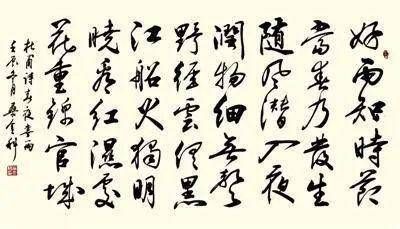 好雨知時節
當春乃發生
隨風潛入夜
潤物細無聲
野徑雲俱黑
江船火獨明
曉看紅濕處
花重錦官城
杜甫詩春夜喜雨
壬辰年月